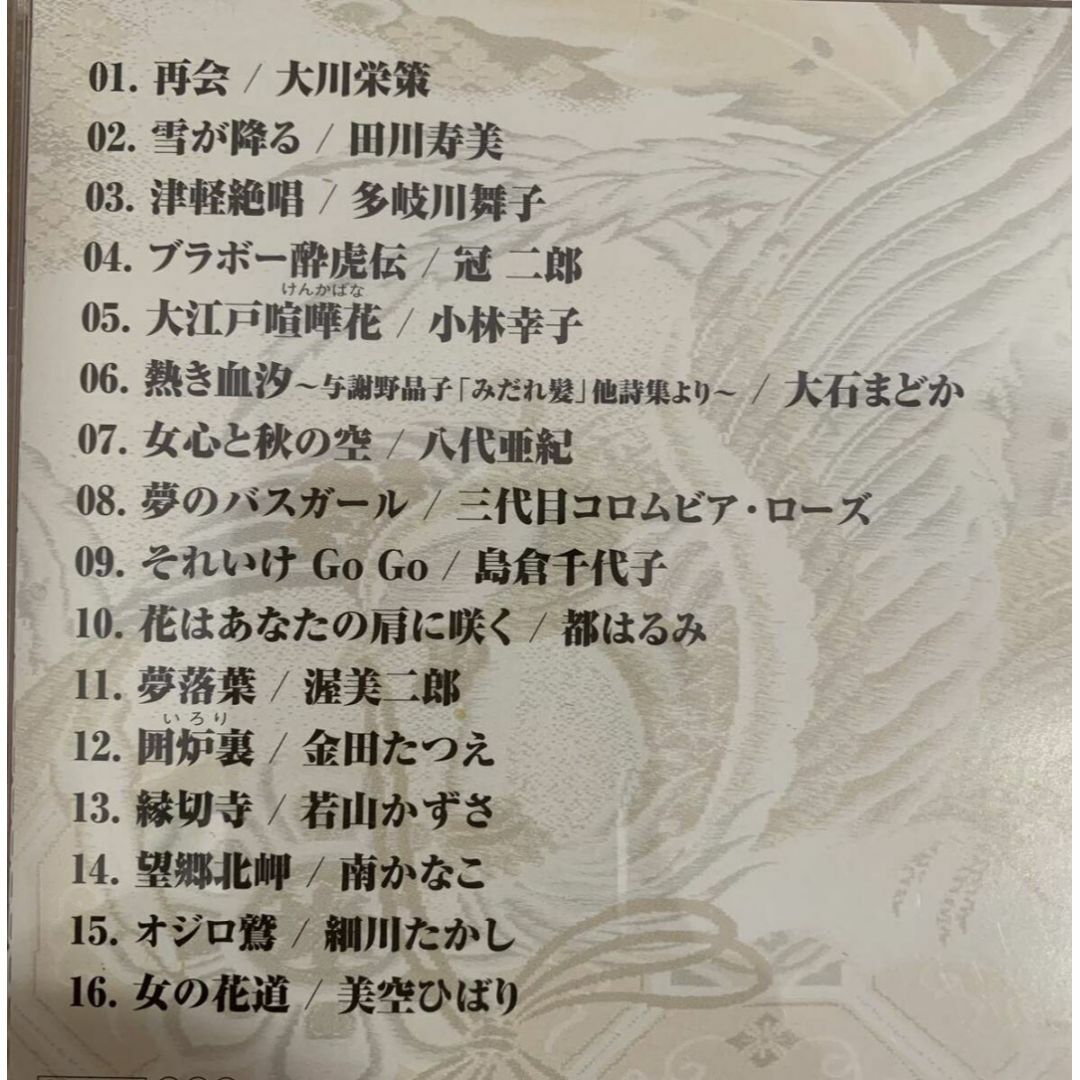 01. 再会 / 大川栄策
02. 雪が降る / 田川寿美
03. 津軽絶唱 / 多岐川舞子
04. ブラボー酔虎伝 / 冠 二郎
けんかばな
05. 大江戸喧嘩花 / 小林幸子
06. 熱き血汐～与謝野晶子「みだれ髪」他詩集より～ / 大石まどか
07. 女心と秋の空 / 八代亜紀
08. 夢のバスガール / 三代目コロムビア・ローズ
09. それいけ Go Go / 島倉千代子
10. 花はあなたの肩に咲く / 都はるみ
11. 夢落葉 / 渥美二郎
いろり
12. 囲炉裏 / 金田たつえ
13. 縁切寺 / 若山かずさ
14. 望郷北岬 / 南かなこ
15. オジロ鷲 / 細川たかし
16. 女の花道 / 美空ひばり